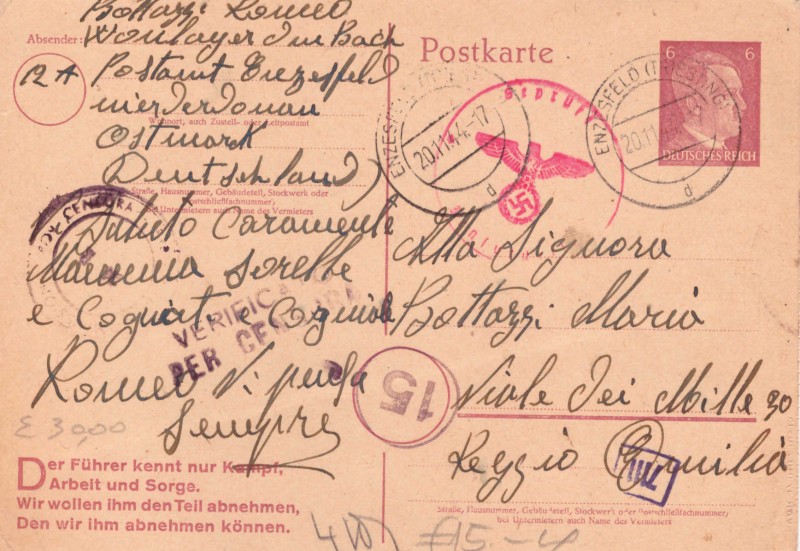 Bottazzi Romeo
Absender:
Wonlager Im Bach
12A Postamt Enzesfeld
nierderdonau
Wohnort, auch Zustell- oder Leitpostamt
Ostmark
Deutschland
Straße, Hausnummer, Gebäudeteil, Stockwerk oder
Postschließfachnummer;
bei Untermietern auch Name des Vermieters
Saluto Caramente
Mamma Sorelle
e Cognat e
Romeo Vi pensa
Sempre
CENSURA
VERIFICATO
PER CENSURA
£ 3000
Der Führer kennt nur Kampf,
Arbeit und Sorge.
Wir wollen ihm den Teil abnehmen,
Den wir ihm abnehmen können.
Postkarte
6 6
DEUTSCHES REICH
ENZESFELD (TRIESTING)
20.11.44.-17
d
ENZESFELD (TRIESTING)
20.11.44
d
Geprüft
Alla Signora
Bottazzi Maria
Viale dei Mille 30
Reggio Emilia
15
Straße, Hausnummer, Gebäudeteil, Stockwerk oder Postschließfachnummer;
bei Untermietern auch Name des Vermieters